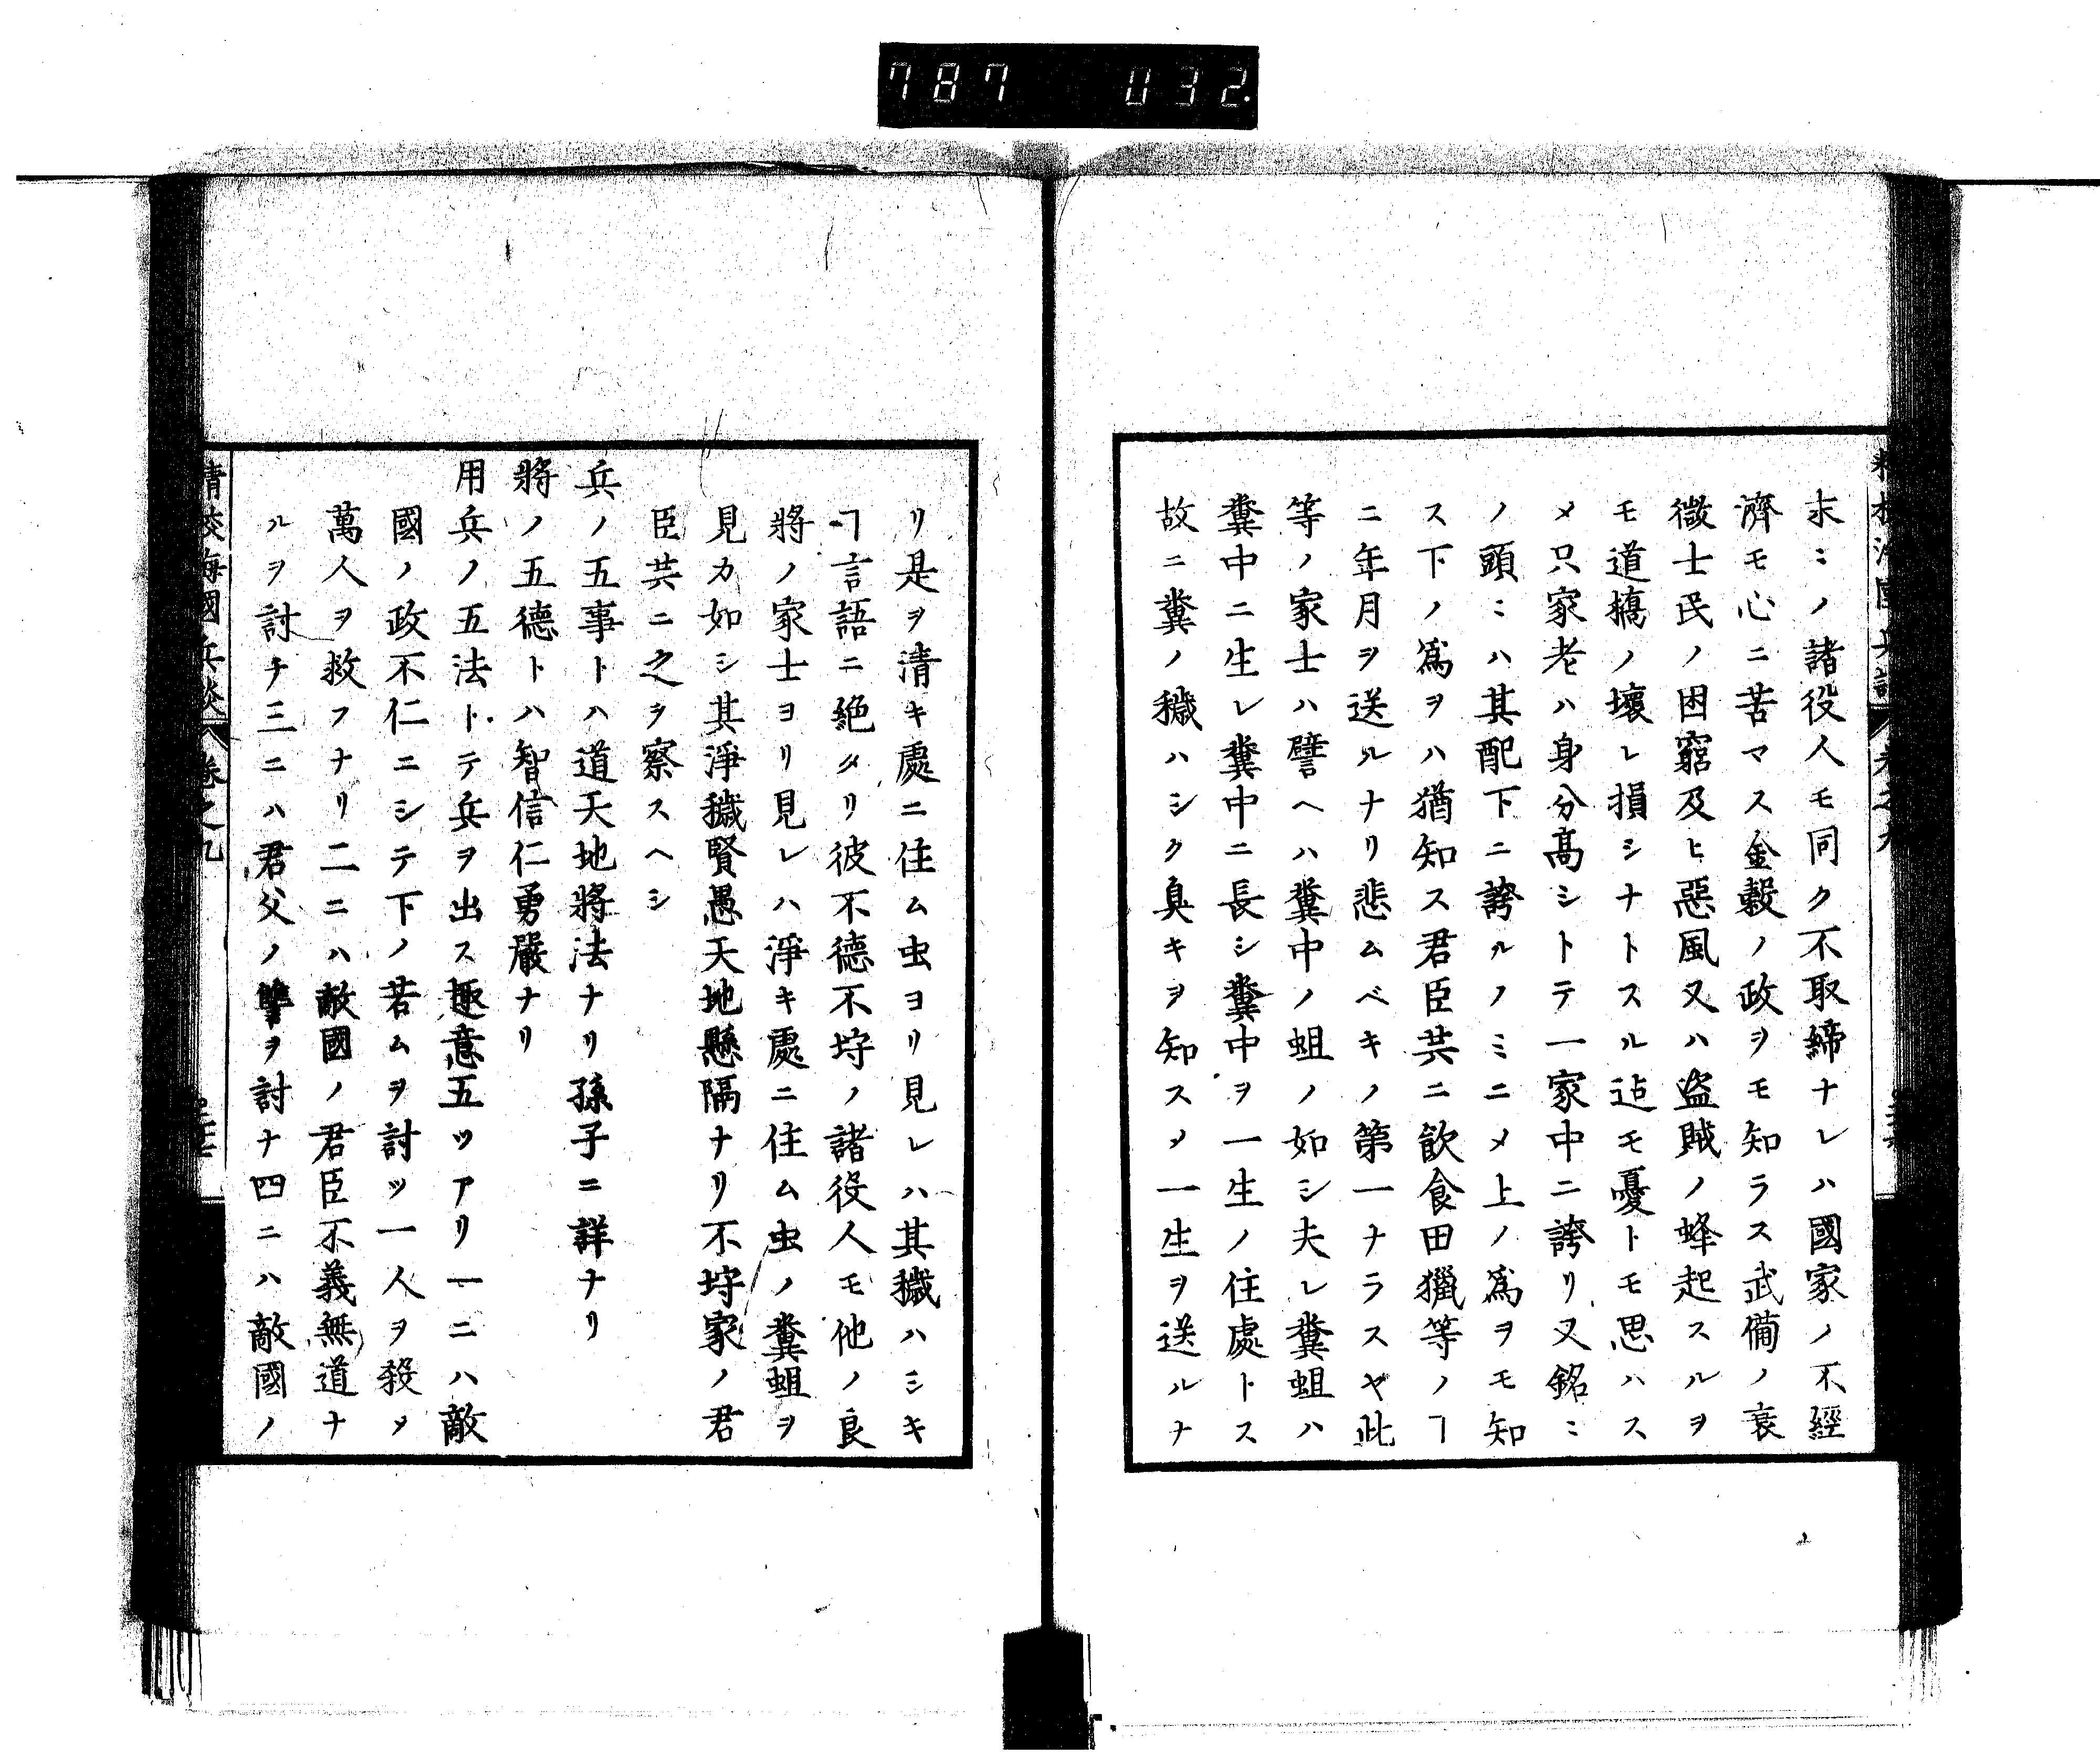 787 032.
末〻ノ諸役人モ同ク不取締ナレハ國家ノ不經
濟モ心ニ苦マス金穀ノ政ヲモ知ラス武備ノ衰
微士民ノ困窮及ヒ惡風又ハ盗賊ノ蜂起スルヲ
モ道橋ノ壞レ損シナトスル迠モ憂トモ思ハス
メ只家老ハ身分高シトテ一家中ニ誇リ又銘〻
ノ頭〻ハ其配下ニ誇ルノミニメ上ノ爲ヲモ知
ス下ノ爲ヲハ猶知ス君臣共ニ飮食田獵等ノヿ
ニ年月ヲ送ルナリ悲ムベキノ第一ナラスヤ此
等ノ家士ハ譬ヘハ糞中ノ蛆ノ如シ夫レ糞蛆ハ
糞中ニ生レ糞中ニ長シ糞中ヲ一生ノ住處トス
故ニ糞ノ穢ハシク臭キヲ知スメ一生ヲ送ルナ
リ是ヲ清キ處ニ住ム虫ヨリ見レハ其穢ハシキ
ヿ言語ニ絶メリ彼不德不埒ノ諸役人モ他ノ良
將ノ家士ヨリ見レハ淨キ處ニ住ム虫ノ糞蛆ヲ
見カ如シ其淨穢賢愚天地懸隔ナリ不埒家ノ君
臣共ニ之ヲ察スヘシ
兵ノ五事トハ道天地將法ナリ孫子ニ詳ナリ
將ノ五德トハ智信仁勇嚴ナリ
用兵ノ五法トテ兵ヲ出ス趣意五ツアリ一ニハ敵
國ノ政不仁ニシテ下ノ苦ムヲ討ツ一人ヲ殺メ
萬人ヲ救フナリ二ニハ敵國ノ君臣不義無道ナ
ルヲ討チ三ニハ君父ノ讐ヲ討ナ四ニハ敵國ノ
精校海國兵談 卷之九